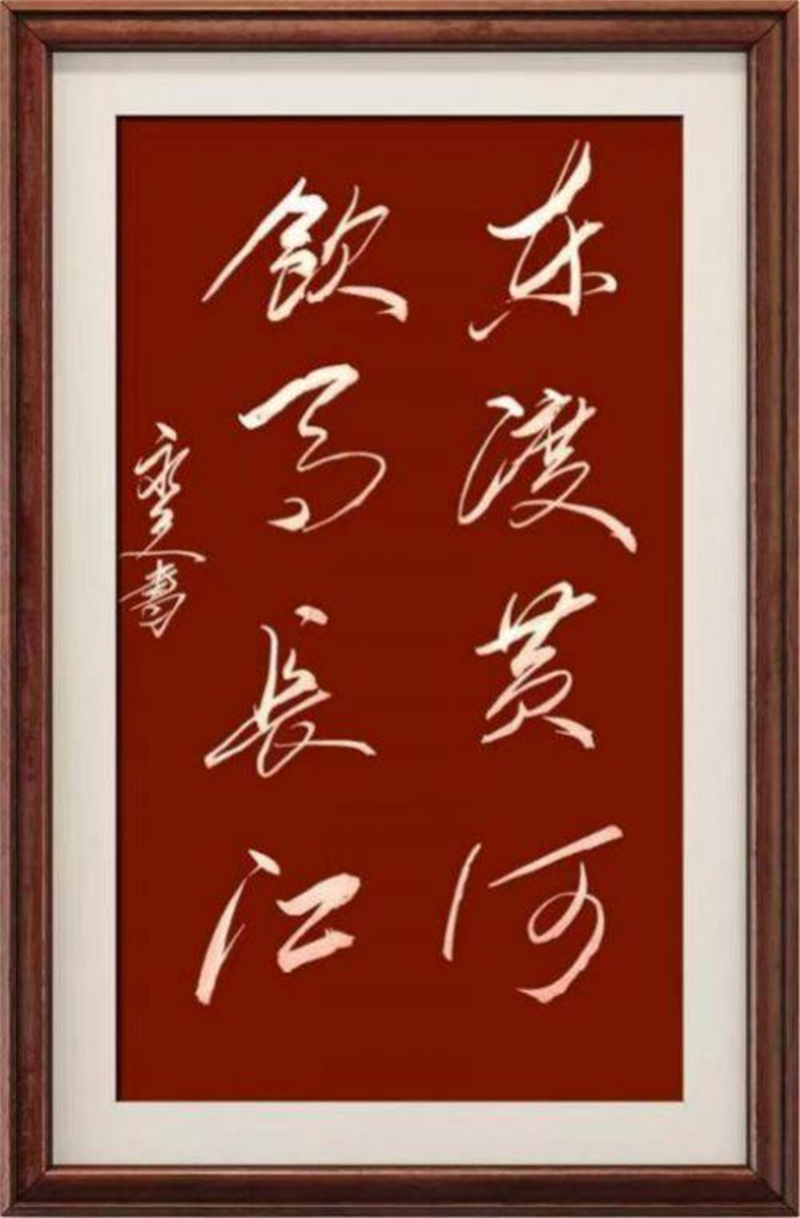 东渡黄河
飲马長江
書